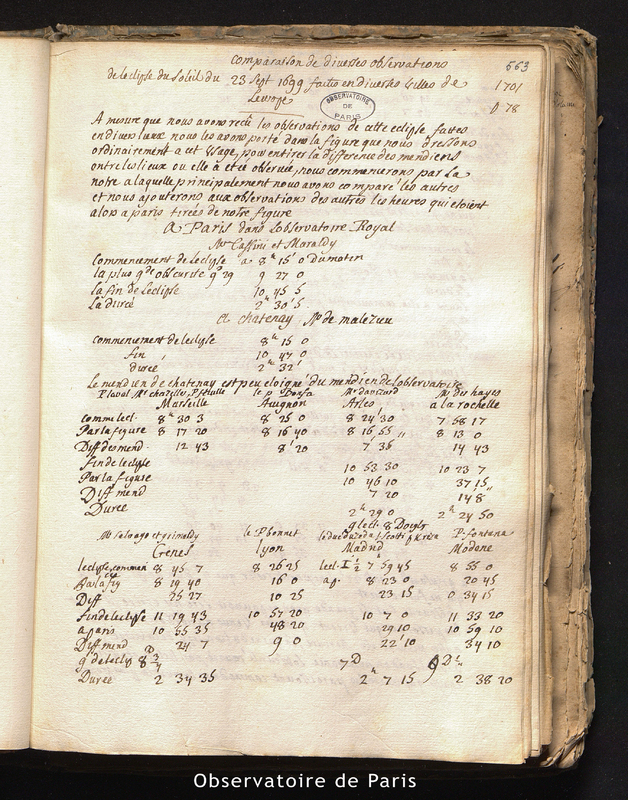 563
Comparaison de diverses observations
de leclipse du Soleil du 23 Sept 1699 faites en diverses Villes de
1701
Leurope
OBSERVATOIRE DE PARIS
p 78
A mesure que nous avons recu les observations de cette eclipse faites
en divers lieux nous les avons porté dans la figure que nous dressons
ordinairement a cet Usage, pour en tirer la difference des meridiens
entre les lieux ou elle a eté observée, nous commencerons par la
notre a laquelle principalement nous avons comparé les autres
et nous ajouterons aux observations des autres les heures qui etoient
alors a paris tirées de notre figure
A Paris dans Lobservatoire Royal
Mrs Cassini et Maraldy
Commencement de leclipse a 8h 15' 0 du matin
la plus gde obscurité 9d 29 9 27 0
la fin de Leclipse 10 45 5
La durée 2h 30' 5
A chatenay Mr de malezieu
commencement de leclypse 8h 15 0
fin 10 47 0
durée 2h 32'
Le meridien de chatenay est peu eloigné du meridien de lobservatoire
P. laval Mr chazelles, P. feuille le p Bonfa Mr davizard Mr des hayes
Marseille Avignon Arles a la rochelle
comm lecl. 8h 30 3 8 25 0 8 24' 30 7 58 17
Par la figure 8 17 20 8 16 40 8 16 55 8 13 0
Diff des mend 12 43 8' 20 7 35 14 43
fin de leclipse 10 53 30 10 23 7
Par la figure 10 46 10 37 15
Diff mend 7 20 14 8
Durée 2h 29 0 2h 24 50
le P bonnet P. fontana
Genes Lyon Madrid Modene
leclyps. commen 8 45 7 8 26 25 7 59 45 8 55 0
Par la fig 8 19 40 16 0 8 23 0 20 45
Diff 25 27 10 25 23 15 0 34 15
fin de leclypse 11 19 43 10 57 20 10 7 0 11 33 20
a paris 10 55 35 48 20 29 10 10 59 10
Diff mend 24 7 9 0 22' 10 34 10
gr de leclyp 8 3/4 7D 9 Dts
Durée 2 34 35 2h 7 15 2 38 20
Observatoire de Paris